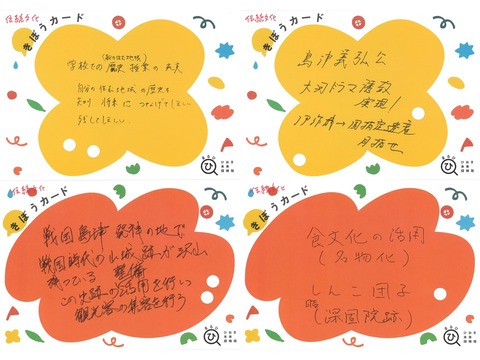 伝統文化
きぼうカード
学校での歴史授業の工夫
自分の住む地域の歴史を
知り 将来に つなげてほしい
残してほしい
伝統文化
きぼうカード
島津義弘公
大河ドラマ誘致
実現!
伊作城→国指定遺産
目指せ
伝統文化
きぼうカード
戦国島津 発祥の地で
戦国時代の山城跡が沢山
残っている 整備
この史跡の活用を行い
観光客の集客を行う
伝統文化
きぼうカード
食文化の活用
(名物化)
しんこ団子
(深固院跡)